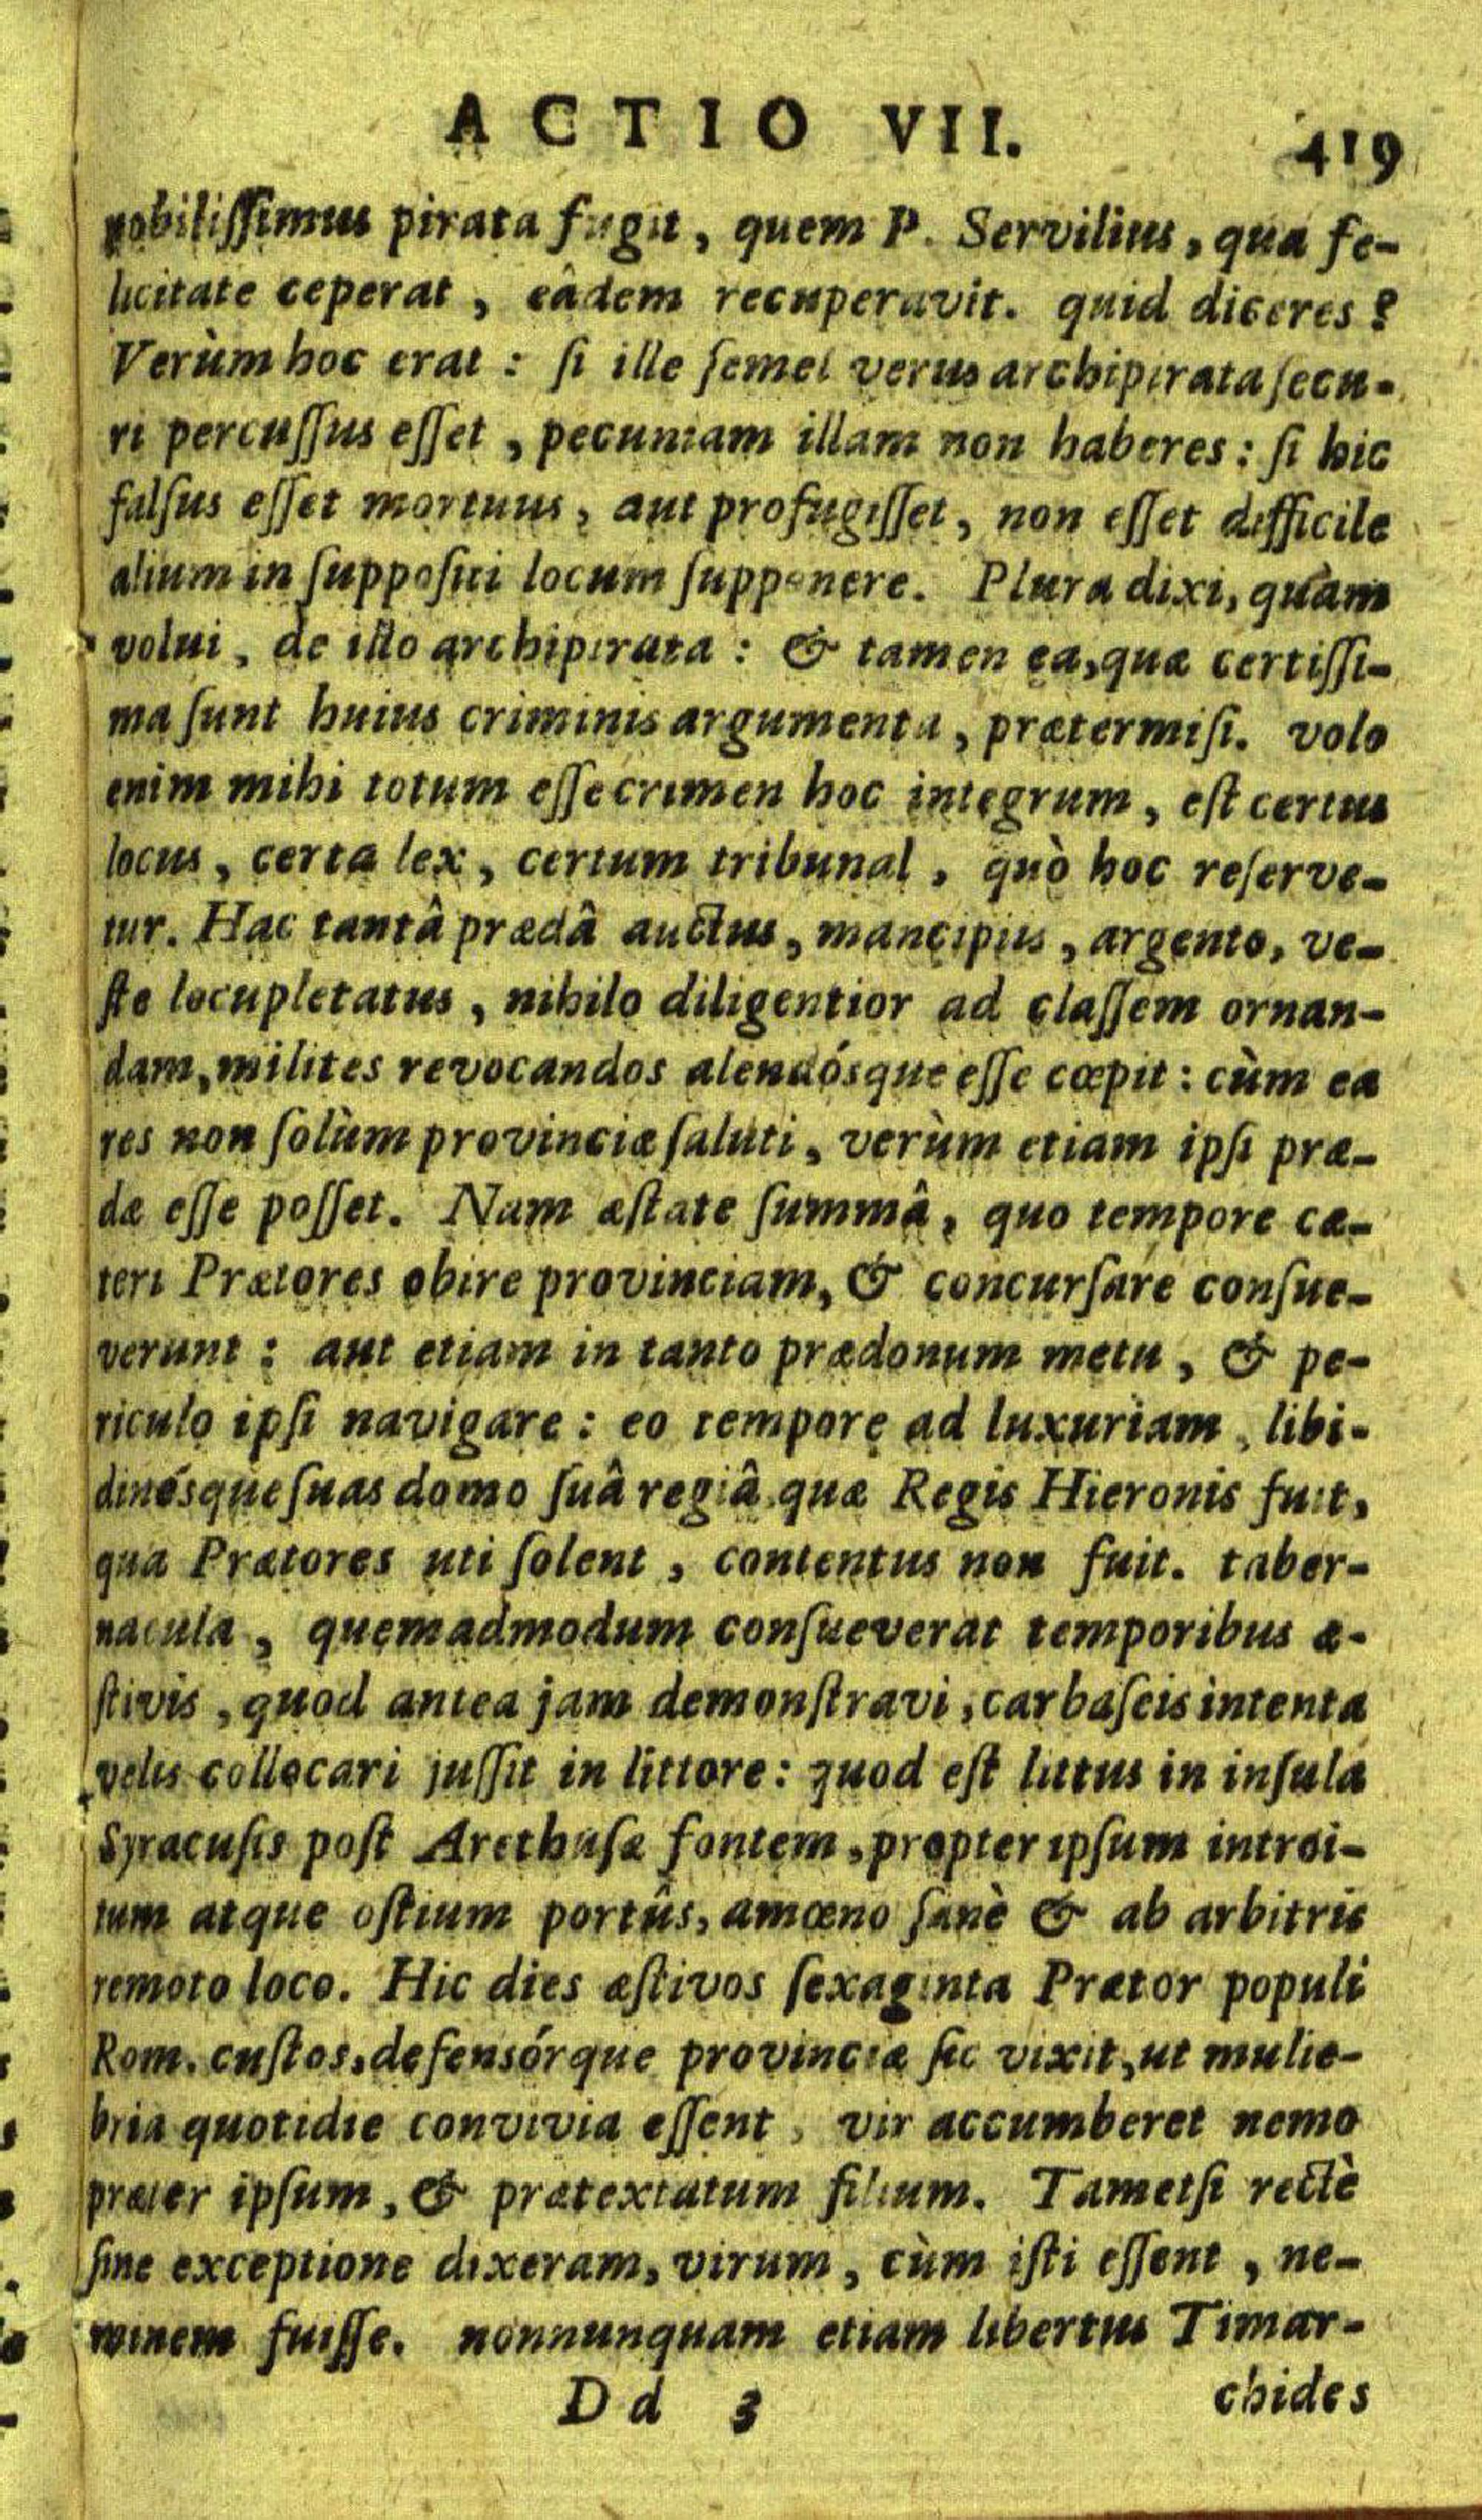 ACTIO VII. 419
nobilissimus pirata fugit, quem P. Servilius, qua fe-
licitate ceperat, eâdem recuperavit. quid diceres?
Verùm hoc erat: si ille semel verus archipirata secu-
ri percussus esset, pecuniam illam non haberes: si hic
falsus esset mortuus, aut profugisset, non esset difficile
alium in suppositi locum supponere. Plura dixi, quàm
volui, de illo archipirata: & tamen ea, quæ certissi-
ma sunt huius criminis argumenta, prætermisi. volo
enim mihi totum esse crimen hoc integrum, est certus
locus, certa lex, certum tribunal, quò hoc reserve-
tur. Hac tantâ prædâ auctus, mancipiis, argento, ve-
ste locupletatus, nihilo diligentior ad classem ornan-
dam, milites revocandos alendósque esse cœpit: cùm ea
res non solùm provinciæ saluti, verùm etiam ipsi præ-
dæ esse posset. Nam æstate summâ, quo tempore cæ-
teri Prætores obire provinciam, & concursare consue-
verunt: aut etiam in tanto prædonum metu, & pe-
riculo ipsi navigare: eo tempore ad luxuriam, libi-
dinésque suas domo suâ regiâ quæ Regis Hieronis fuit,
qua Prætores uti solent, contentus non fuit. taber-
nacula, quemadmodum consueverat temporibus æ-
stivis, quod antea jam demonstravi, carbaseis intenta
velis collocari jussit in littore: quod est littus in insula
Syracusis post Arethusæ fontem, propter ipsum introi-
tum atque ostium portûs, amœno sanè & ab arbitris
remoto loco. Hic dies æstivos sexaginta Prætor populi
Rom. custos, defensórque provinciæ sic vixit, ut mulie-
bria quotidie convivia essent, vir accumberet nemo
præter ipsum, & prætextatum filium. Tametsi rectè
sine exceptione dixeram, virum, cùm isti essent, ne-
minem fuisse. nonnunquam etiam libertus Timar-
Dd 3 chides